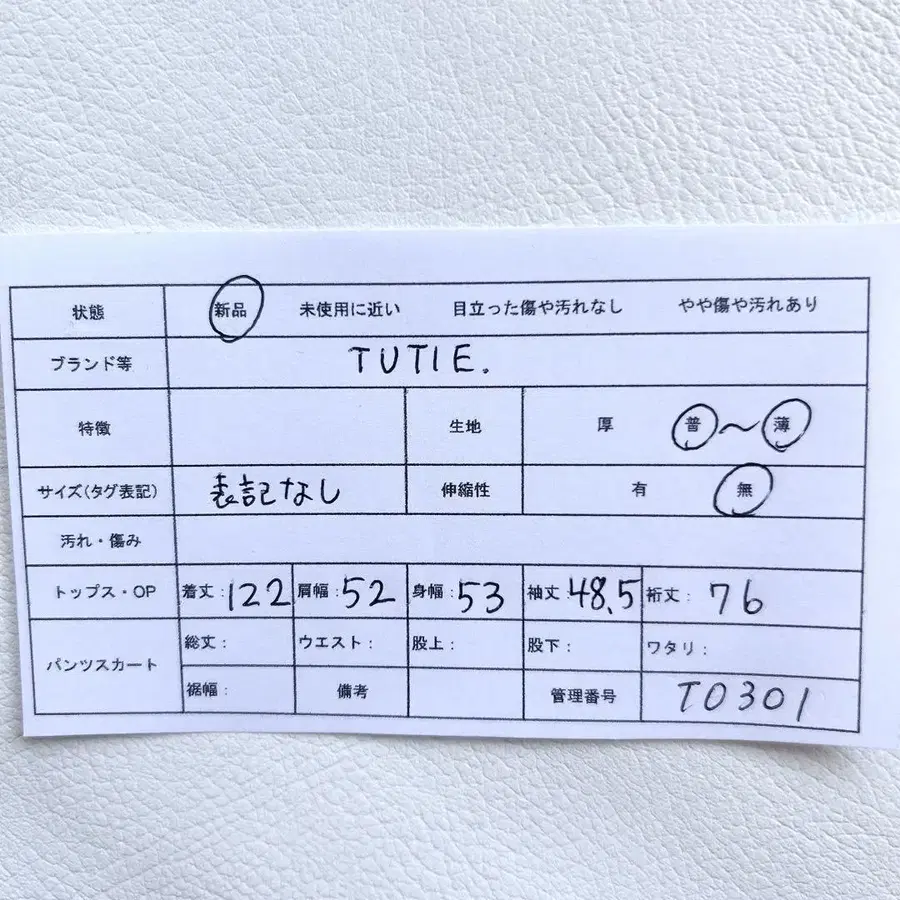 状態 新品 未使用に近い 目立った傷や汚れなし やや傷や汚れあり
ブランド等 TUTIE.
特徴 生地 厚 普〜薄
サイズ(タグ表記) 表記なし 伸縮性 有 無
汚れ・傷み
トップス・OP 着丈:122 肩幅:52 身幅:53 袖丈:48.5 裄丈:76
パンツスカート 総丈: ウエスト: 股上: 股下: ワタリ:
裾幅: 備考 管理番号 T0301